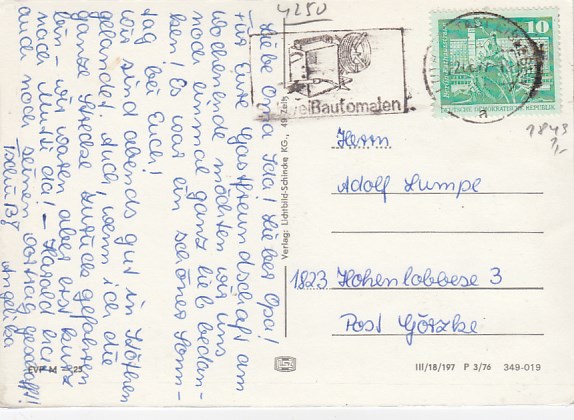 4250
Liebe Oma Ida! Lieber Opa!
Für Eure Gastfreundschaft am
Wochenende möchten wir uns
noch einmal ganz lieb bedan-
ken! Es war ein schöner Sonn-
tag bei Euch!
Wir sind abends gut in Köthen
gelandet. Auch, wenn ich die
ganze Strecke zurück gefahren
bin - wir waren aber erst kurz
nach Mutti da! - Harald hat
auch noch seinen Vortrag geschafft!
Tschüß!
Angelika
Verlag: Lichtbild-Schincke KG., 49 Zeitz
weißautomaten
10
DEUTSCHE DEMOKRATISCHE REPUBLIK
a
1843
Herrn
Adolf Lumpe
1823 Hohenlobbese 3
Post Görzke
EVP M -,25
III/18/197 P 3/76 349-019